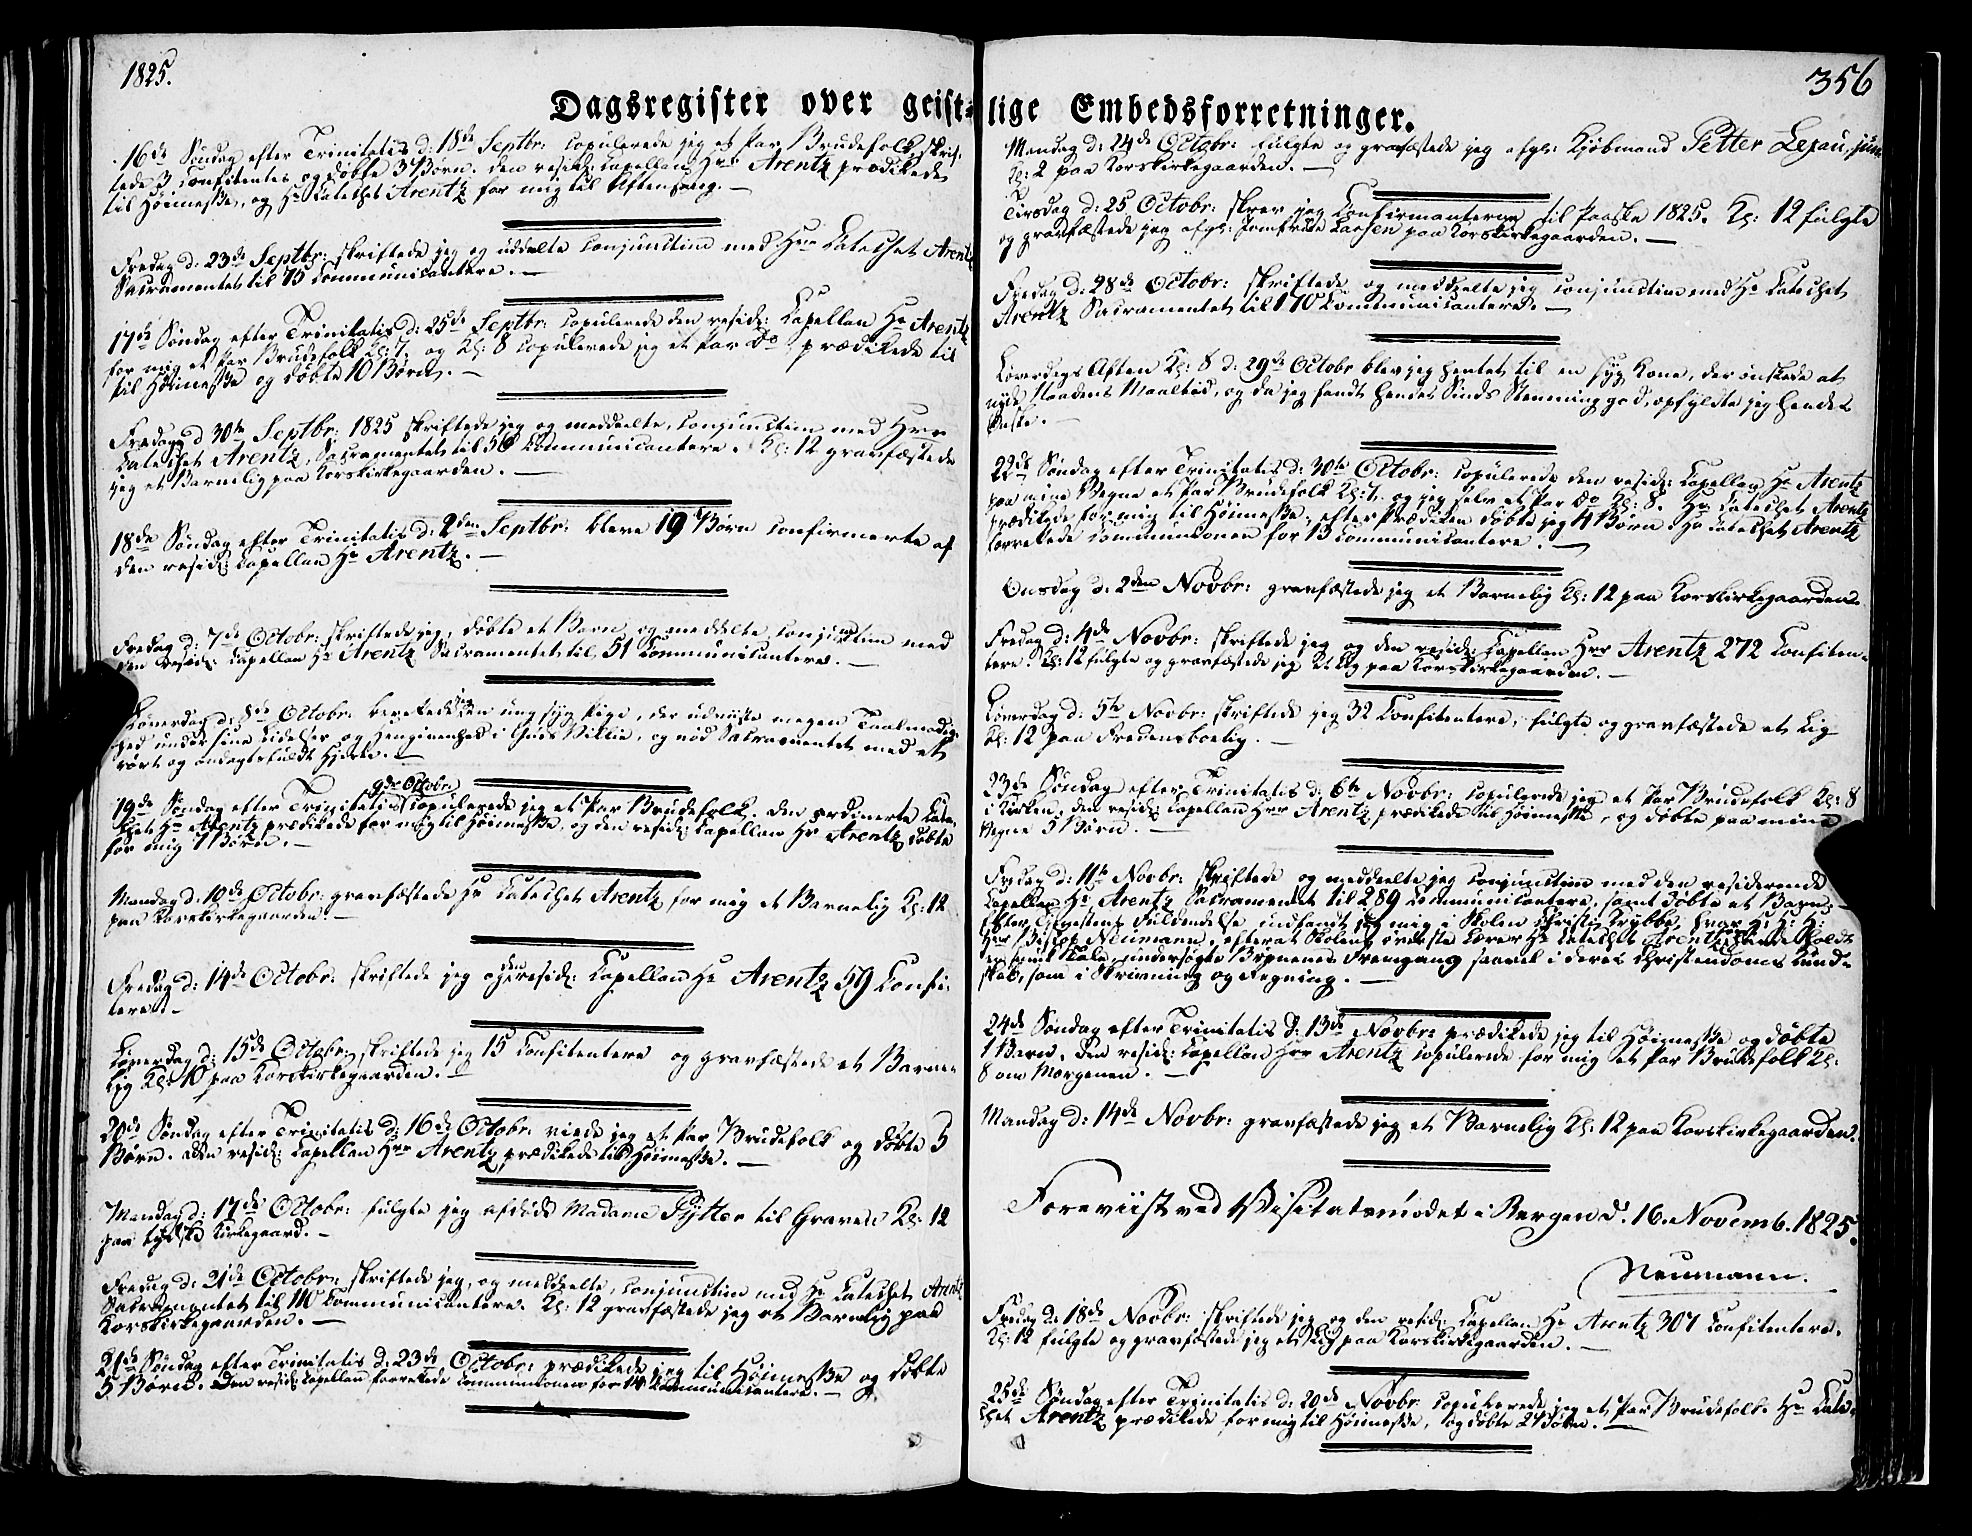 1825.
Dagsregister over geist-
16de Søndag efter Trinitatis d: 18de Septbr: copulerede jeg et Par Brudefolk, skrif-
tede 3 Confitentes og døbte 3 Børn. den resid: Capellan Hr Arentz prædikede
til Høimesse, og Hr Catechet Arentz for mig til Aftensang. —
Fredag d: 23de Septbr: skriftede jeg og uddelte conjunctim med Hrr Catechet Arentz
Sacramentet til 75 Communicantere. —
17de Søndag efter Trinitatis d: 25de Septbr: copulerede den resid: Capellan Hr Arentz
for mig et Par Brudefolk Kl: 7. og Kl: 8 copulerede jeg et Par Do, prædikede til
til Høimesse og døbte 10 Børn. —
Fredag d 30te Septbr: 1825 skriftede jeg og meddeelte, conjunctim med Hrr
Catechet Arentz, Sacramentet til 56 Communicantere. Kl: 12 gravfæstede
jeg et Barnelig paa Korskirkegaarden. —
18de Søndag efter Trinitatis d: 2den Septbr: bleve 19 Børn confirmerte af
den resid: Capellan Hr Arentz. —
Fredag d: 7de Octobr: skriftede jeg, døbte et Barn og meddelte conjunctim med
den resid: Capellan Hr Arentz Sacramentet til 51 Communicantere. —
Løverdag d: 8de Octobr: berettede jeg en ung syg Pige, der udviiste megen Taalmodig-
hed under sine Lidelser og Hengivenhed i Guds Villie, og nød Sacramentet med et
rørt og andagtsfuldt Hjerte. —
9de Octobr:
19de Søndag efter Trinitatis copulerede jeg et Par Brudefolk. den ordinerte Cate-
chet Hr Arentz prædikede for mig til Høimesse, og den resid: Capellan Hr Arentz døbte
for mig 7 Børn. —
Mandag d: 10de Octobr: gravfæstede Hr Catechet Arentz for mig et Barnelig Kl: 12
paa Korskirkegaarden —
Fredag d: 14de Octobr: skriftede jeg og den resid: Capellan Hr Arentz 59 Confi-
tere. —
Løverdag d: 15de Octobr: skriftede jeg 15 Confitentere og gravfæstede et Barne-
lig Kl: 10 paa Korskirkegaarden. —
20de Søndag efter Trinitatis d: 16de Octobr: viede jeg et Par Brudefolk og døbte 5
Børn. den resid: Capellan Hrr Arentz prædikede til Høimesse. —
Mandag d: 17de Octobr: fulgte jeg afdøde Madame Pytter til Graven Kl: 12
paa tydske Kirkegaard. —
Fredag d: 21de Octobr: skriftede jeg, og meddeelte, conjunctim med Hr Catechet Arentz
Sacramentet til 110 Communicantere. Kl: 12 gravfæstede jeg et Barnelig paa
Korskirkegaarden. —
21de Søndag efter Trinitatis d: 23de Octobr: prædikede jeg til Høimesse og døbte
5 Børn. Den resid: Capellan forrettede Communionen for 14 Communicantere. —
356
lige Embedsforretninger.
Mandag d: 24de Octobr: fulgte og gravfæstede jeg afgl: Kjøbmand Petter Lexau, jun:
Kl: 2 paa Korskirkegaarden. —
Tirsdag d: 25 Octobr: skrev jeg Confirmanterne til Paaske 1825. Kl: 12 fulgte
og gravfæstede jeg afgl: Jomfrue Larsen paa Korskirkegaarden. —
Fredag d: 28de Octobr: skriftede og meddeelte jeg conjunctim med Hr Catechet
Arentz Sacramentet til 170 Communicantere. —
Løverdags Aften Kl: 8 d: 29de Octobr blev jeg hentet til en syg Kone, der ønskede at
nyde Naadens Maaltid, og da jeg fandt hendes Sinds Stemning god, opfyldte jeg hendes
Ønske. —
22de Søndag efter Trinitatis d: 30te Octobr: copulerede den resid: Capellan Hr Arentz
paa mine Vegne et Par Brudefolk Kl: 7. og jeg selv et Par Do Kl: 8. Hr Catechet Arentz
prædikede for mig til Høimesse, efter Prædiken døbte jeg 4 Børn Hr Catechet Arentz
forrettede Communionen for 13 Communicantere. —
Onsdag d: 2den Novbr: gravfæstede jeg et Barnelig Kl: 12 paa Korskirkegaarden.
Fredag d: 4de Novbr: skriftede jeg og den resid: Capellan Hrr Arentz 272 Confiten-
tere. Kl: 12 fulgte og gravfæstede jeg et Lig paa Korskirkegaarden. —
Løverdag d: 5te Novbr: skriftede jeg 32 Confitentere, fulgte og gravfæstede et Lig
Kl: 12 paa Fredensbolig. —
23de Søndag efter Trinitatis d: 6te Novbr: copulerede jeg et Par Brudefolk Kl: 8
i Kirken, den resid: Capellan Hrr Arentz prædikede til Høimesse, og døbte paa mine
Vegne 5 Børn. —
Fredag d: 11te Novbr: skriftede og meddeelte jeg conjunctim med den residerende
Capellan Hr Arentz Sacramentet til 289 Communicantere, samt døbte et Barn.
Efter Tjenestens Fuldendelse indfandt jeg mig i Skolen Christi Krybbe, hvor H: H: H:
Hrr Biskop Neumann, efterat Skolens øverste Lærer Hr Catechet Arentz havde holdt
en smuk Tale, undersøgte Børnenes Fremgang saavel i deres Christendoms Kund-
skab, som i Skrivning og Regning. —
24de Søndag efter Trinitatis d: 13de Novbr: prædikede jeg til Høimesse og døbte
1 Barn. Den resid: Capellan Hrr Arentz copulerede for mig et Par Brudefolk Kl:
8 om Morgenen. —
Mandag d: 14de Novbr: gravfæstede jeg et Barnelig Kl: 12 paa Korskirkegaarden.
Foreviist ved Visitatsmødet i Bergen d. 16. Novemb. 1825.
Neumann.
Fredag d: 18de Novbr: skriftede jeg og den resid: Capellan Hr Arentz 307 Confitentere.
Kl: 12 fulgte og gravfæstede jeg et Lig paa Korskirkegaarden. —
25de Søndag efter Trinitatis d: 20de Novbr copulerede jeg et Par Brudefolk. Hr Cate-
chet Arentz prædikede for mig til Høimesse, og døbte 2 Børn. —